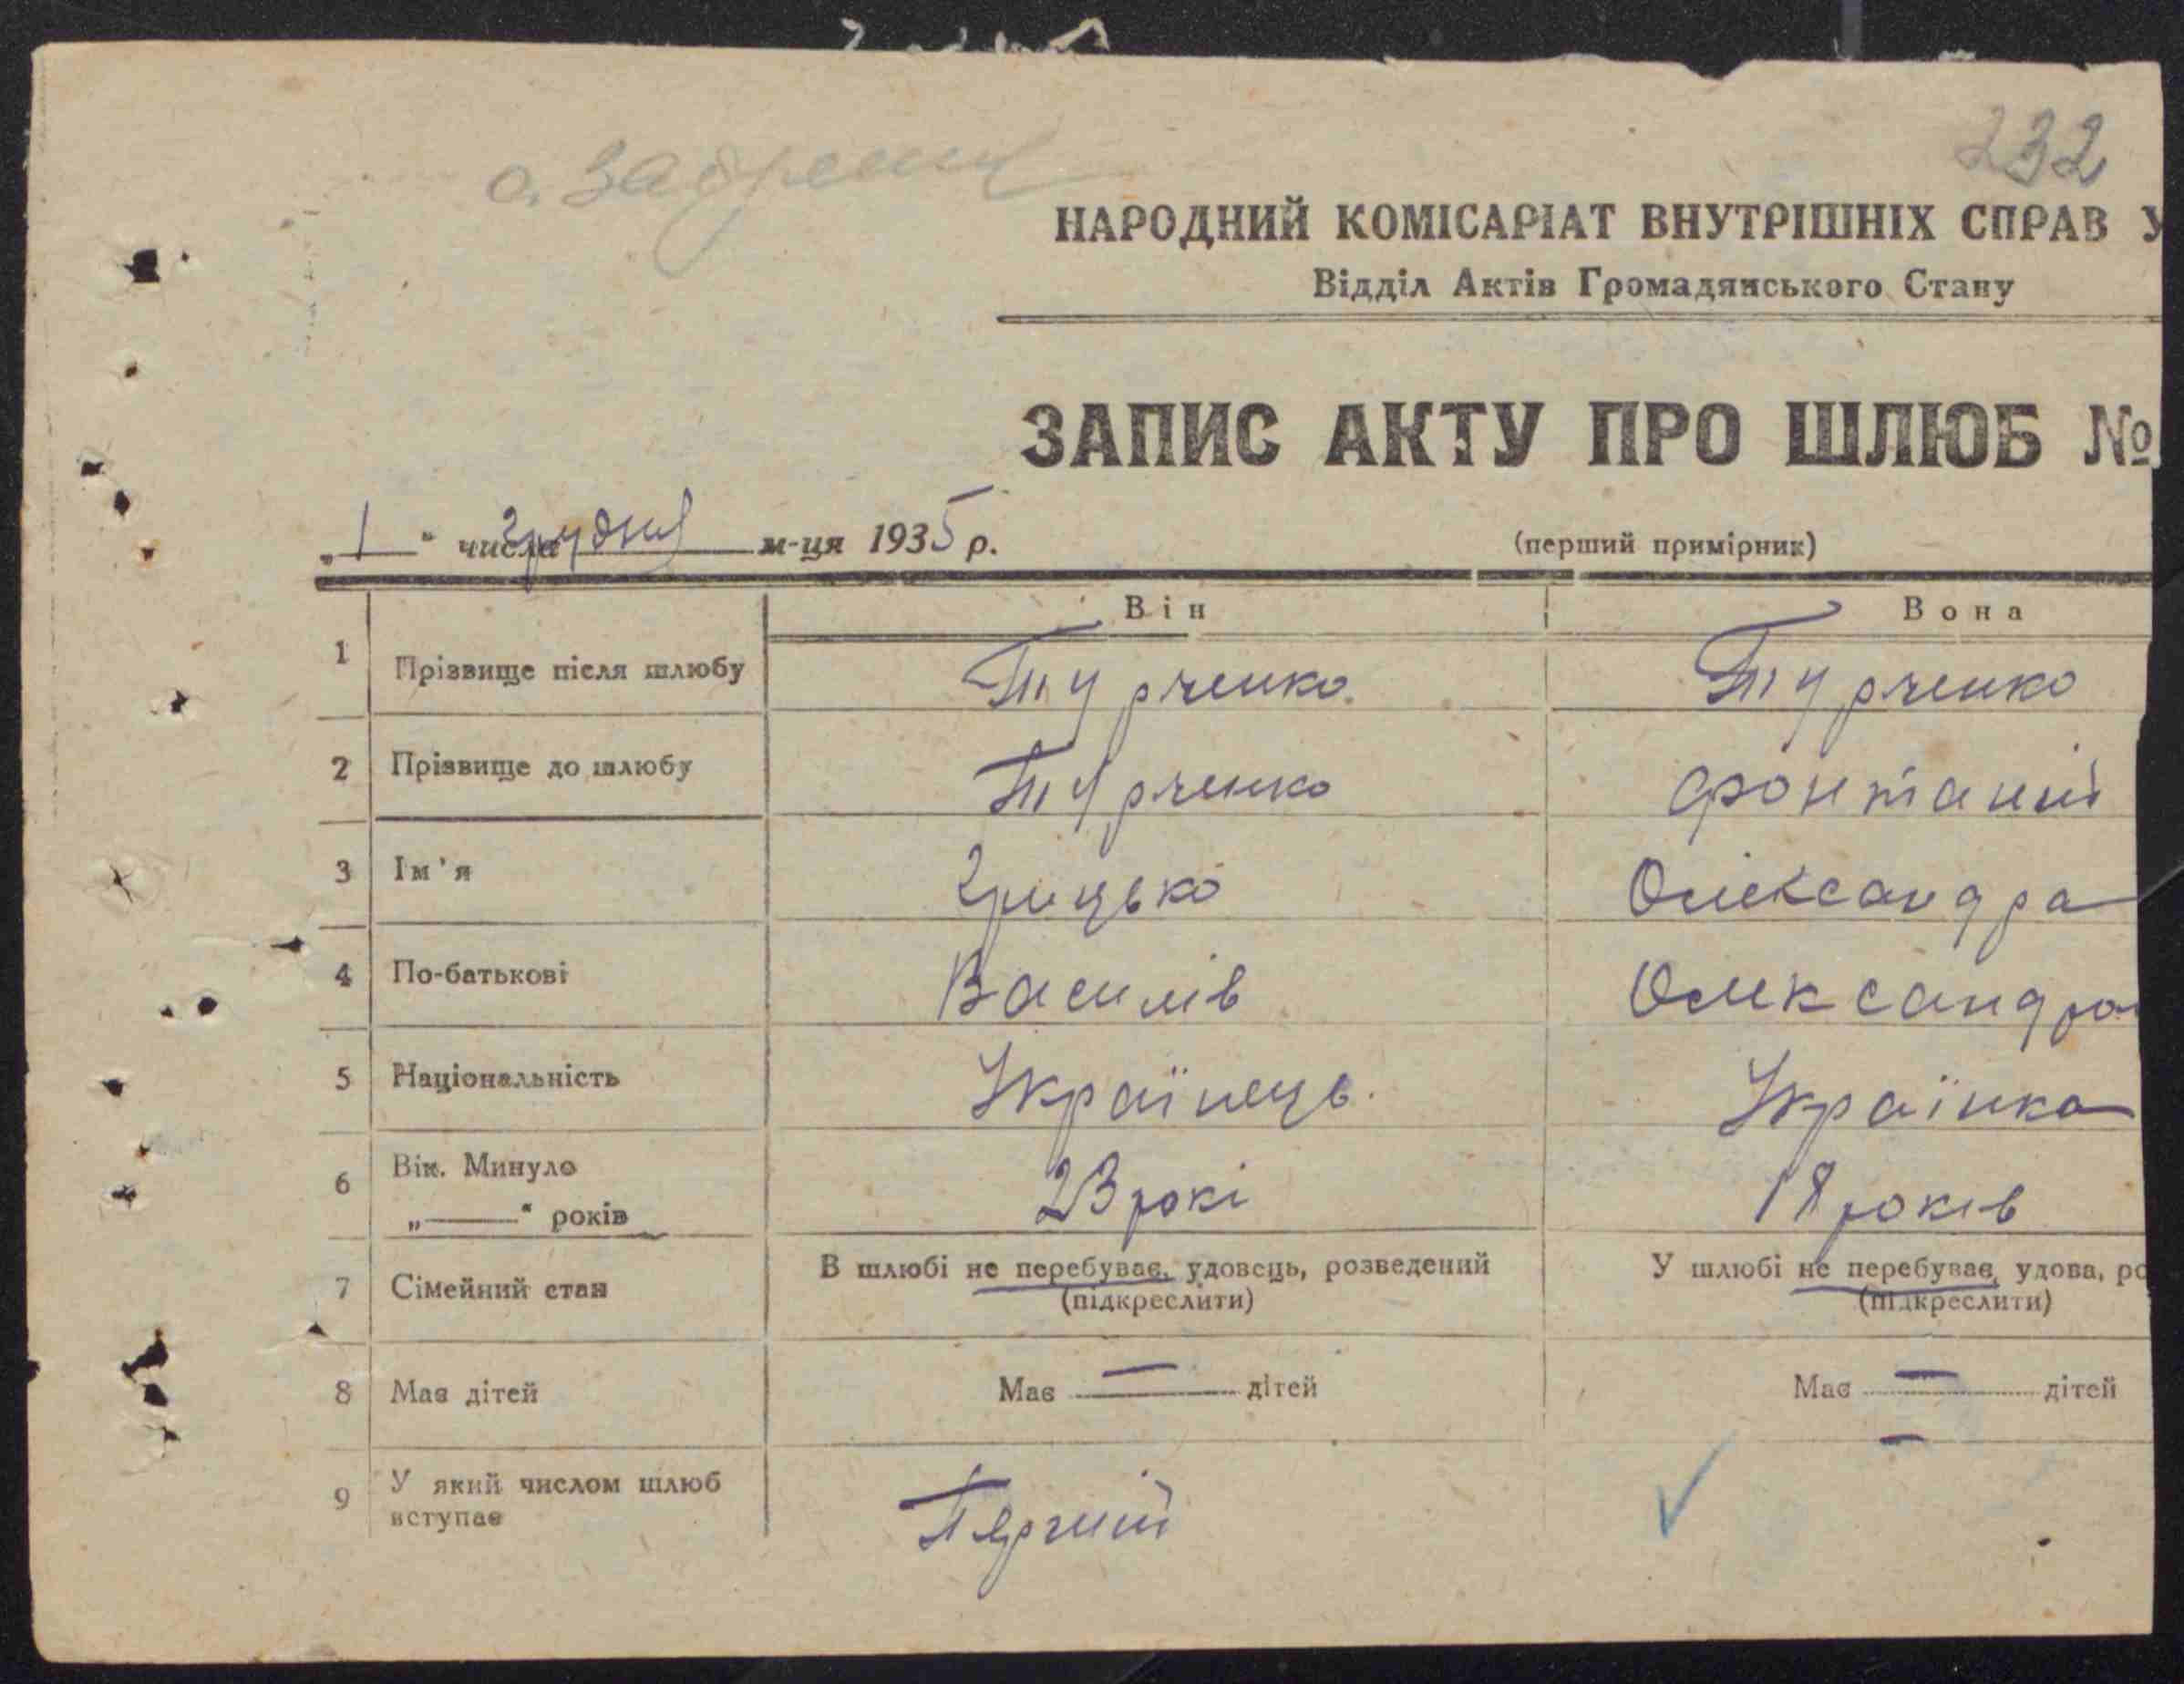 232
НАРОДНИЙ КОМІСАРІАТ ВНУТРІШНІХ СПРАВ У
Відділ Актів Громадянського Стану
ЗАПИС АКТУ ПРО ШЛЮБ №
„1“ числа грудня м-ця 1935 р.
(перший примірник)
Він Вона
1 Прізвище після шлюбу Турченко Турченко
2 Прізвище до шлюбу Турченко
3 Ім'я Грицько Олександра
4 По-батькові Василів Олександров
5 Національність Українець. Українка
6 Вік. Минуло
„——“ років 23 рокі 18 років
7 Сімейний стан В шлюбі не перебуває, удовець, розведений У шлюбі не перебуває, удова, ро
(підкреслити) (підкреслити)
8 Має дітей Має — дітей Має — дітей
9 У який числом шлюб
вступає Перший —